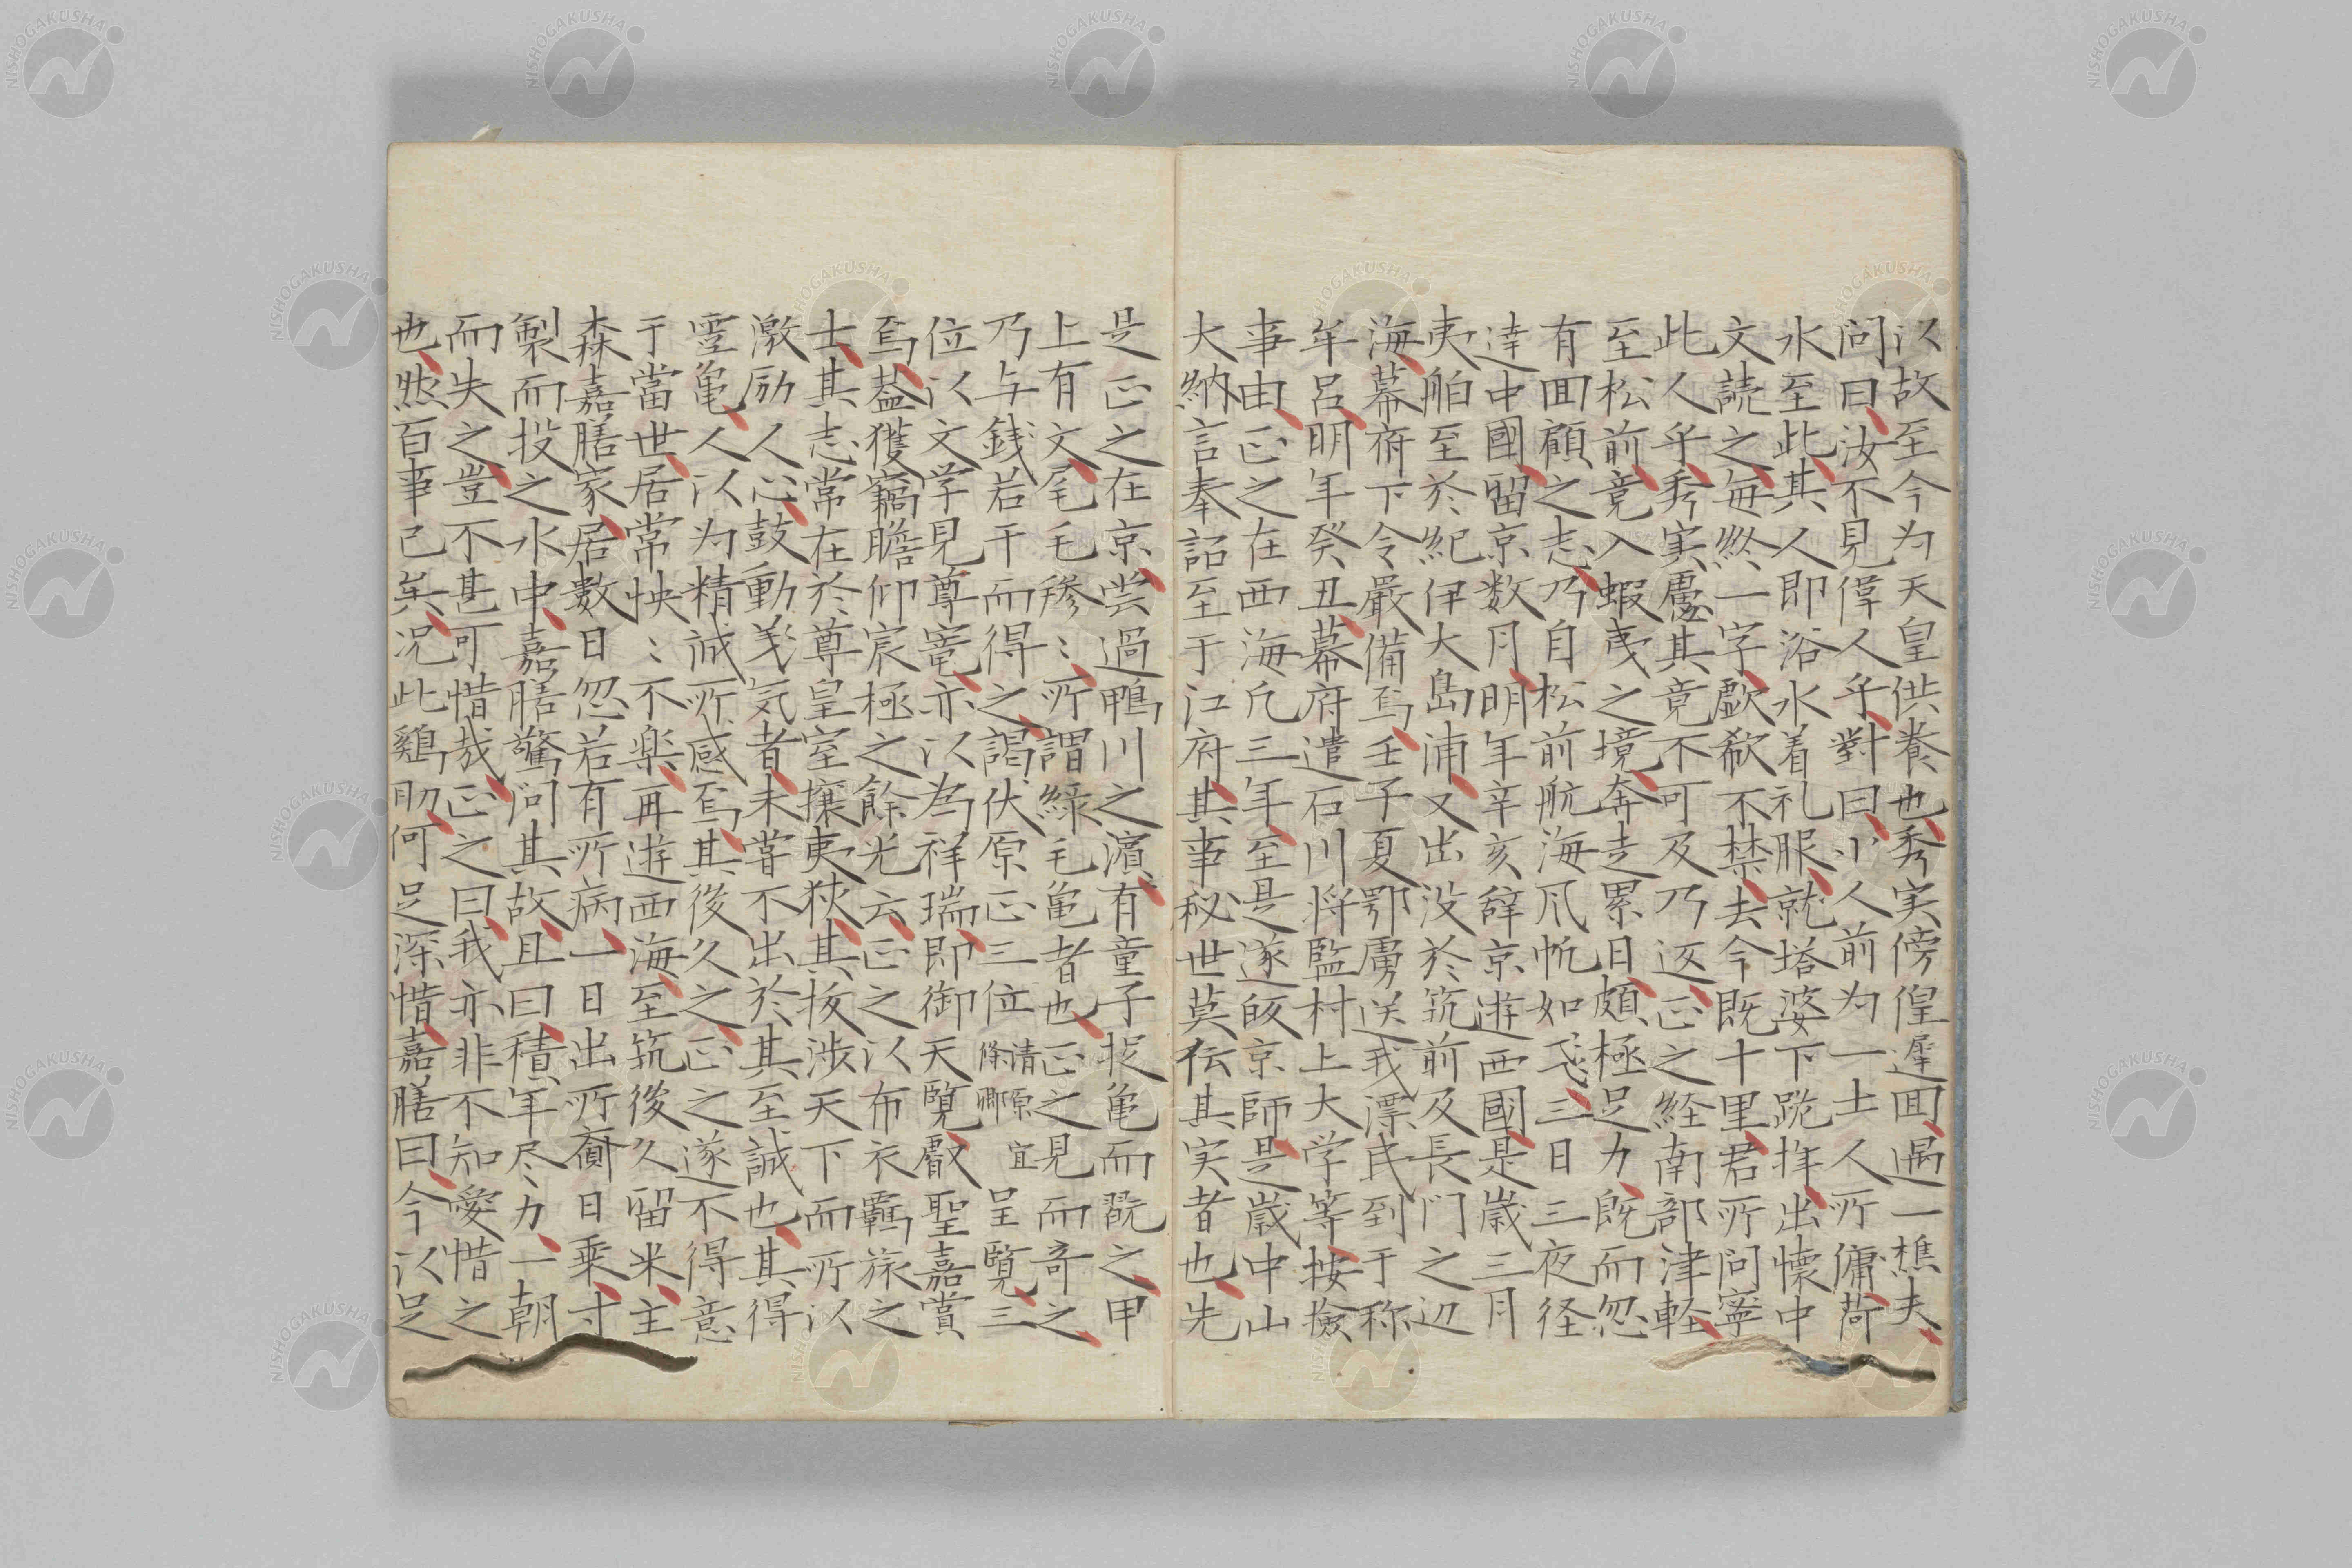 以故至今为天皇供養也秀実傍偟遅回遇一樵夫
问曰汝不見偉人乎對曰小人前为一士人所傭荷
水至此其人即浴水着礼服就塔婆下跪拝出懐中
文読之毎終一字歔欷不禁去今既十里君所问寧
此人乎秀実慮其竟不可及乃返正之経南部津軽
至松前竟入蝦夷之境奔走累日頗極足力既而忽
有回顧之志乃自松前航海凡帆如飞三日三夜径
達中國留京数月明年辛亥辞京遊西國是歳三月
夷舶至於紀伊大島浦又出没於筑前及長门之辺
海幕府下令嚴備焉壬子夏鄂虜送我漂民到于称
年呂明年癸丑幕府遣石川将監村上大学等按撿
事由正之在西海凢三年至是遂皈京師是歳中山
大納言奉詔至于江府其事秘世莫伝其実者也先
是正之在京嘗過鴨川之濱有童子捉亀而翫之甲
上有文尾毛毿〻所謂緑毛亀者也正之見而奇之
乃与銭若干而得之謁伏原正三位清原宜條卿呈覧三
位以文学見尊寵亦以为祥瑞即御天覧叡聖嘉賞
焉蓋獲竊瞻仰宸極之餘光云正之以布衣羈旅之
士其志常在於尊皇室攘夷狄其抜渉天下而所以
激励人心鼓動義気者未嘗不出於其至誠也其得
霊亀人以为精誠所感焉其後久之正之遂不得意
于當世居常怏〻不楽再遊西海至筑後久留米主
森嘉膳家居數日忽若有所病一日出所齎日乗寸
製而投之水中嘉膳驚问其故且曰積年尽力一朝
而失之豈不甚可惜哉正之曰我亦非不知愛惜之
也然百事已矣况此鷄肋何足深惜嘉膳曰今以足